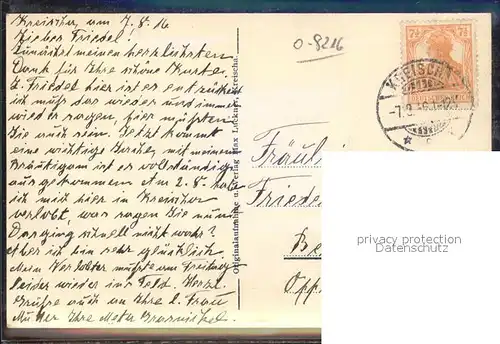 Kreischa, am 7.8.16
Lieber Friedel!
Zunächst meinen herzlichsten
Dank für Ihre schöne Karte
L. Friedel hier ist es entzückend
ich muß das wieder und immer
wieder sagen, hier müßten
Sie auch sein. Jetzt kommt
eine wichtige Sache, mit meinem
Bräutigam ist es vollständig
auseinander gekommen. Am 2.8. habe
ich mich hier in Kreischa
verlobt, was sagen Sie nun
Das ging schnell nicht wahr?
Aber ich bin sehr glücklich
Mein Verlobter mußte am Freitag
leider wieder ins Feld. Herzl.
Grüße auch an Ihre l. Frau
Mutter Ihre Meta
O-8216
7½ 7½
KREISCHA
Originalaufnahme u. Verlag Max Lockner, Kreischa.
Fräulein
Friede
Be
Opp
privacy protection
Datenschutz